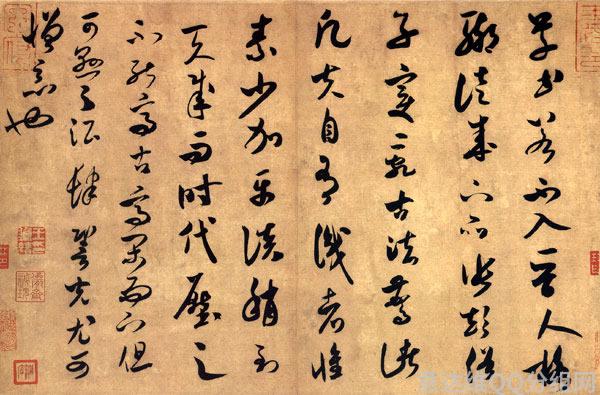 草書若不入晉人格
輒徒成下品張顛俗
子變亂古法驚諸
凡夫自有識者懷
素少加平淡稍到
天成而時代壓之
不能高古高閑而下但
可懸之酒肆䛒光尤可
憎惡也
QQ分组网